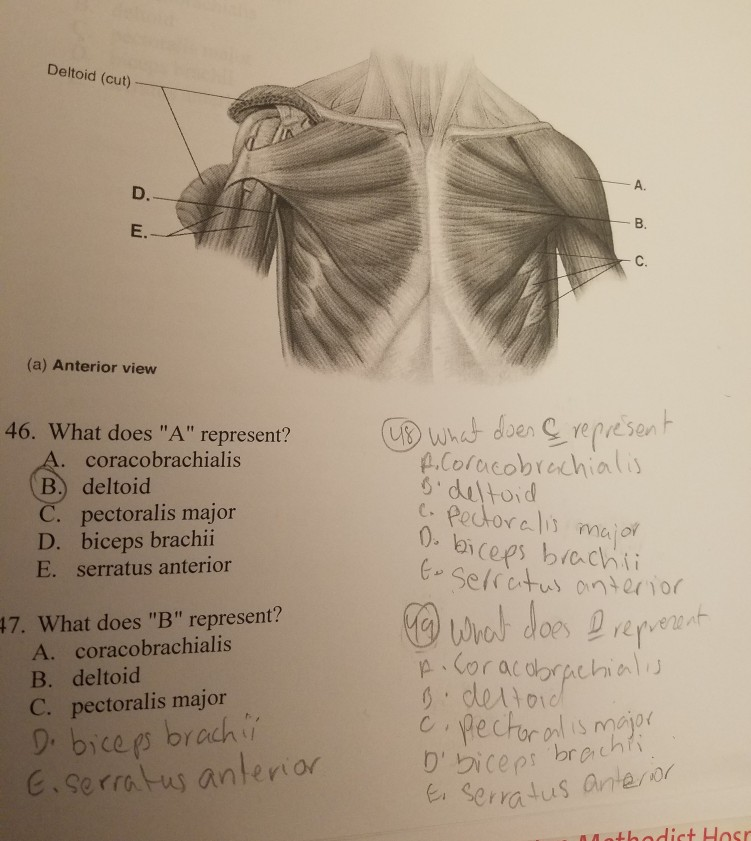 Deltoid (cut)
D.
E.
A.
B.
C.
(a) Anterior view
46. What does "A" represent?
A. coracobrachialis
B. deltoid
C. pectoralis major
D. biceps brachii
E. serratus anterior
47. What does "B" represent?
A. coracobrachialis
B. deltoid
C. pectoralis major
D. biceps brachii
E. serratus anterior
48 What does C represent
A. Coracobrachialis
B. deltoid
C. Pectoralis major
D. biceps brachii
E. Serratus anterior
49 What does D represent
A. Coracobrachialis
B. deltoid
C. pectoralis major
D. biceps brachii
E. Serratus anterior
Methodist Hosp